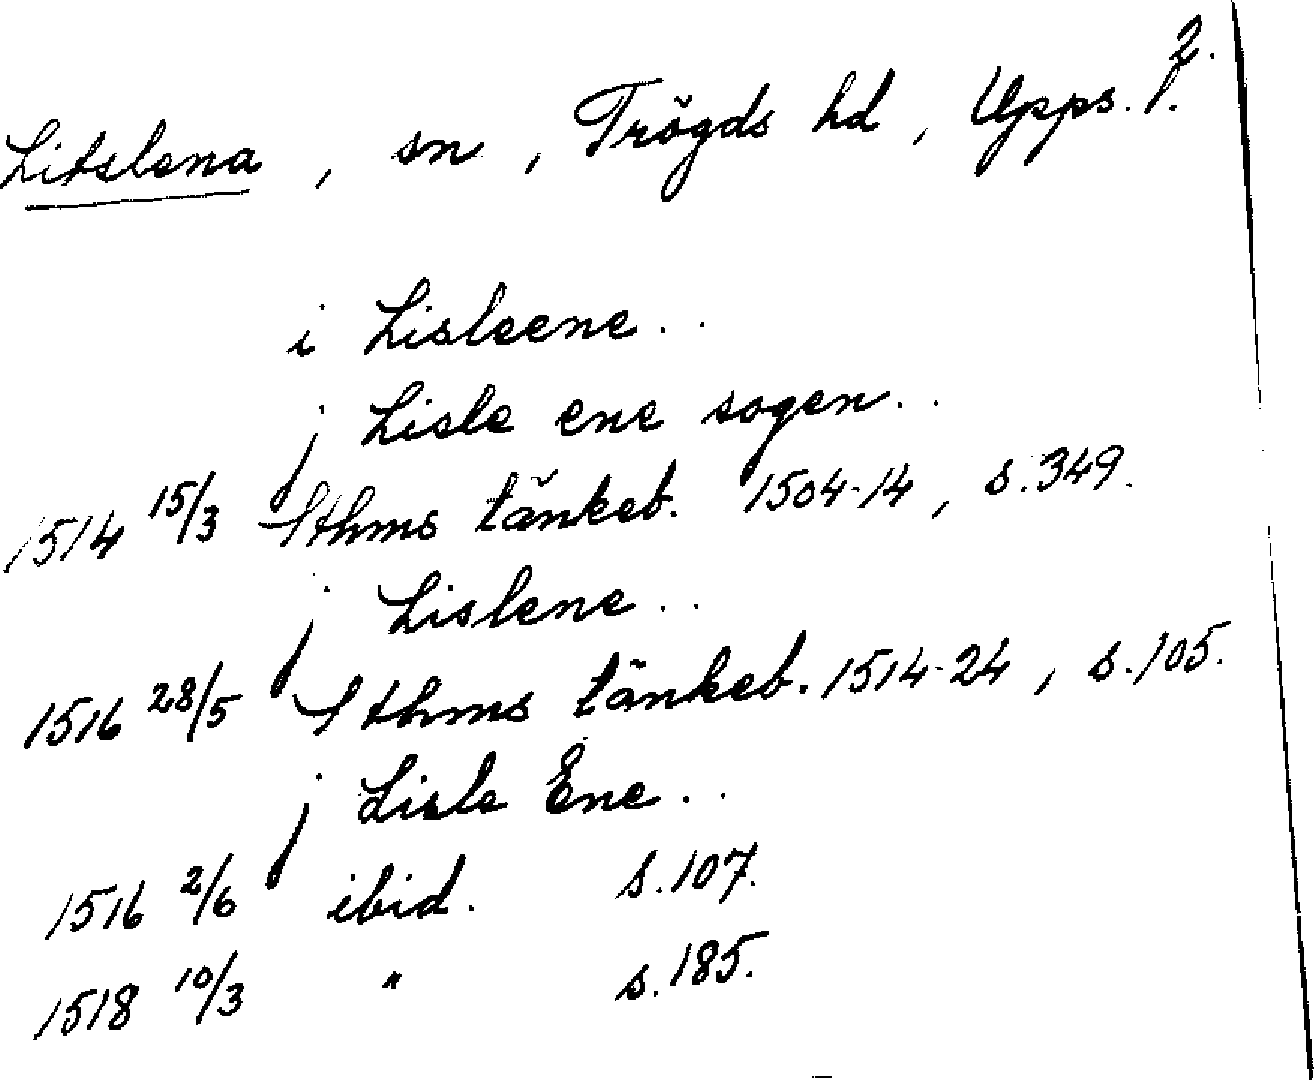 2.
Litslena, sn, Trögds hd, Upps. l.
i Lisleene..
j Lisle ene sogen..
1514 15/3 Sthms tänkeb. 1504-14, s. 349.
j Lislene..
1516 28/5 Sthms tänkeb. 1514-24, s. 105.
j Lisle Ene..
1516 2/6 ibid. s. 107.
1518 10/3 " s. 185.